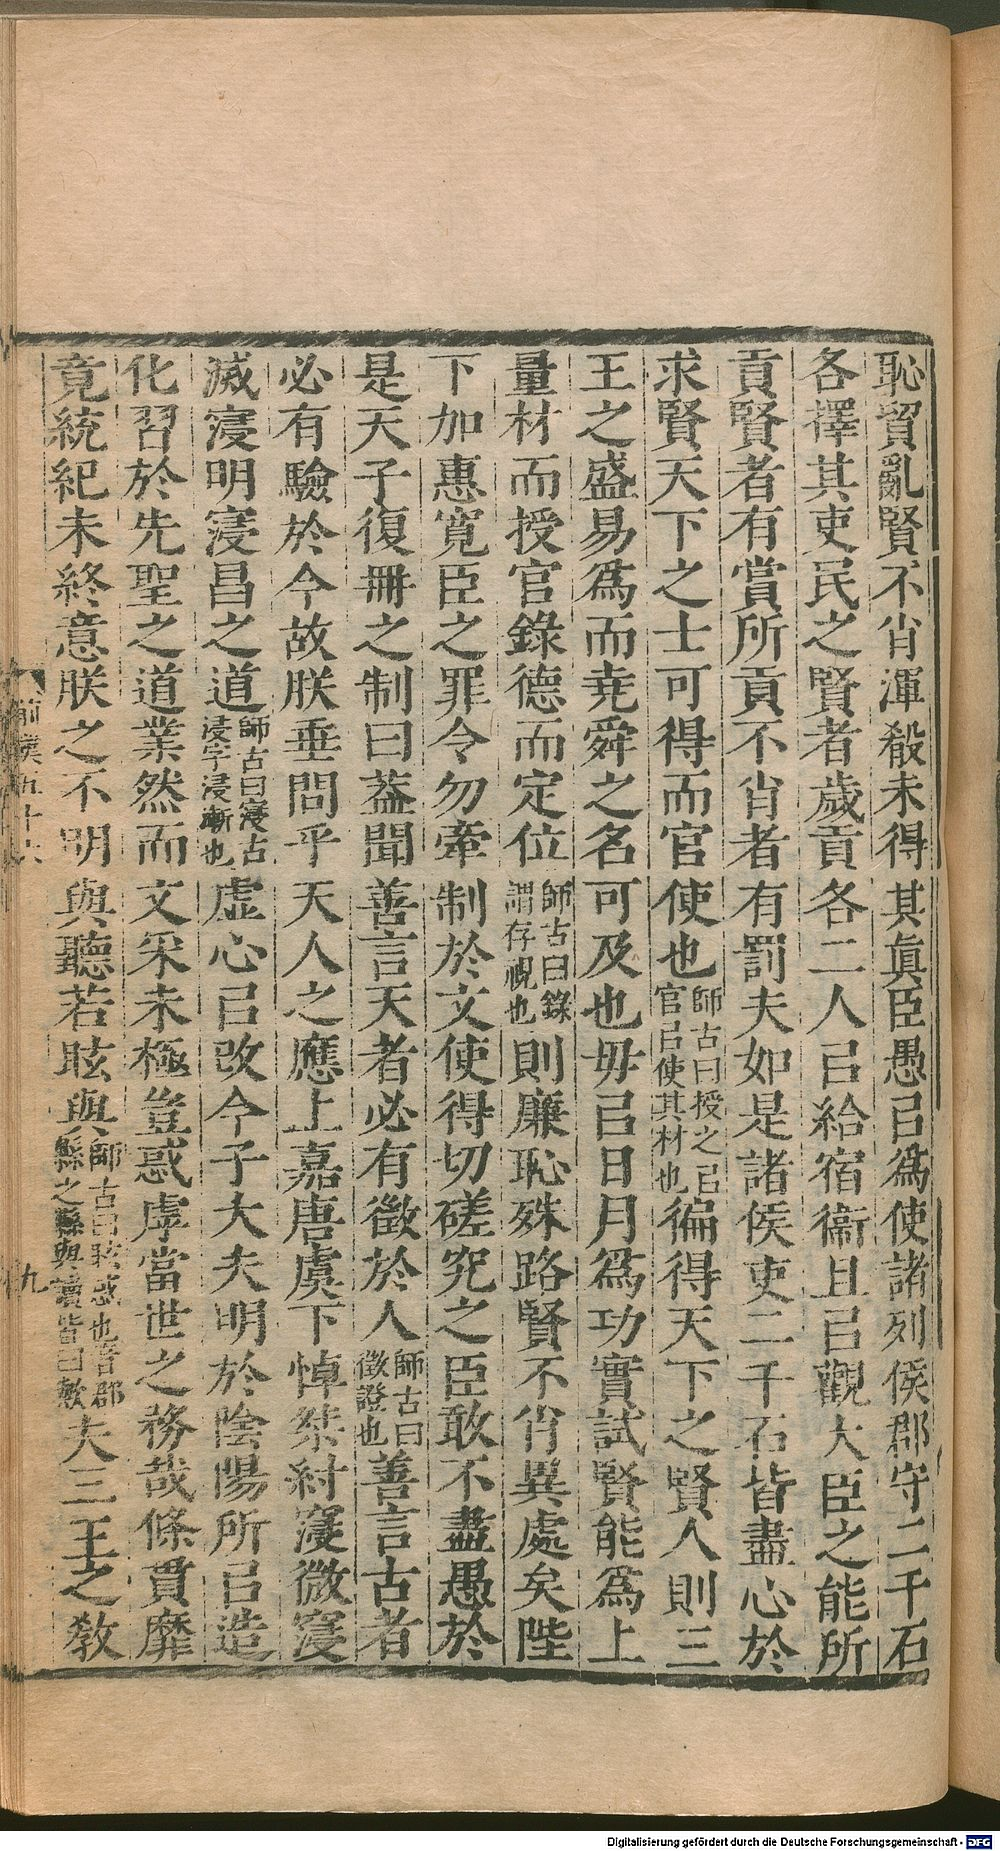 恥貿亂賢不肖渾殽未得其眞臣愚㠯爲使諸列侯郡守二千石
各擇其吏民之賢者歲貢各二人㠯給宿衞且㠯觀大臣之能所
貢賢者有賞所貢不肖者有罰夫如是諸侯吏二千石皆盡心於
求賢天下之士可得而官使也師古曰授之㠯官㠯使其材也徧得天下之賢人則三
王之盛易爲而堯舜之名可及也毋㠯日月爲功實試賢能爲上
量材而授官錄德而定位師古曰錄謂存視也則廉恥殊路賢不肖異處矣陛
下加惠寬臣之罪令勿牽制於文使得切磋究之臣敢不盡愚於
是天子復冊之制曰葢聞善言天者必有徵於人師古曰徵證也善言古者
必有驗於今故朕垂問乎天人之應上嘉唐虞下悼桀紂寖微寖
滅寖明寖昌之道師古曰寖古浸字浸漸也虛心㠯改今子大夫明於陰陽所㠯造
化習於先聖之道業然而文采未極豈惑虖當世之務哉條貫靡
竟統紀未終意朕之不明與聽若眩與師古曰眩惑也音郡縣之縣與讀皆曰歟夫三王之敎
前漢五十六
九
Digitalisierung gefördert durch die Deutsche Forschungsgemeinschaft - DFG